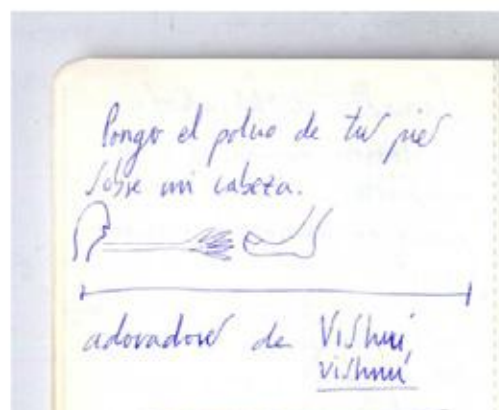 Pongo el polvo de tus pies
sobre mi cabeza.
adoradores de Vishnú,
vishnú